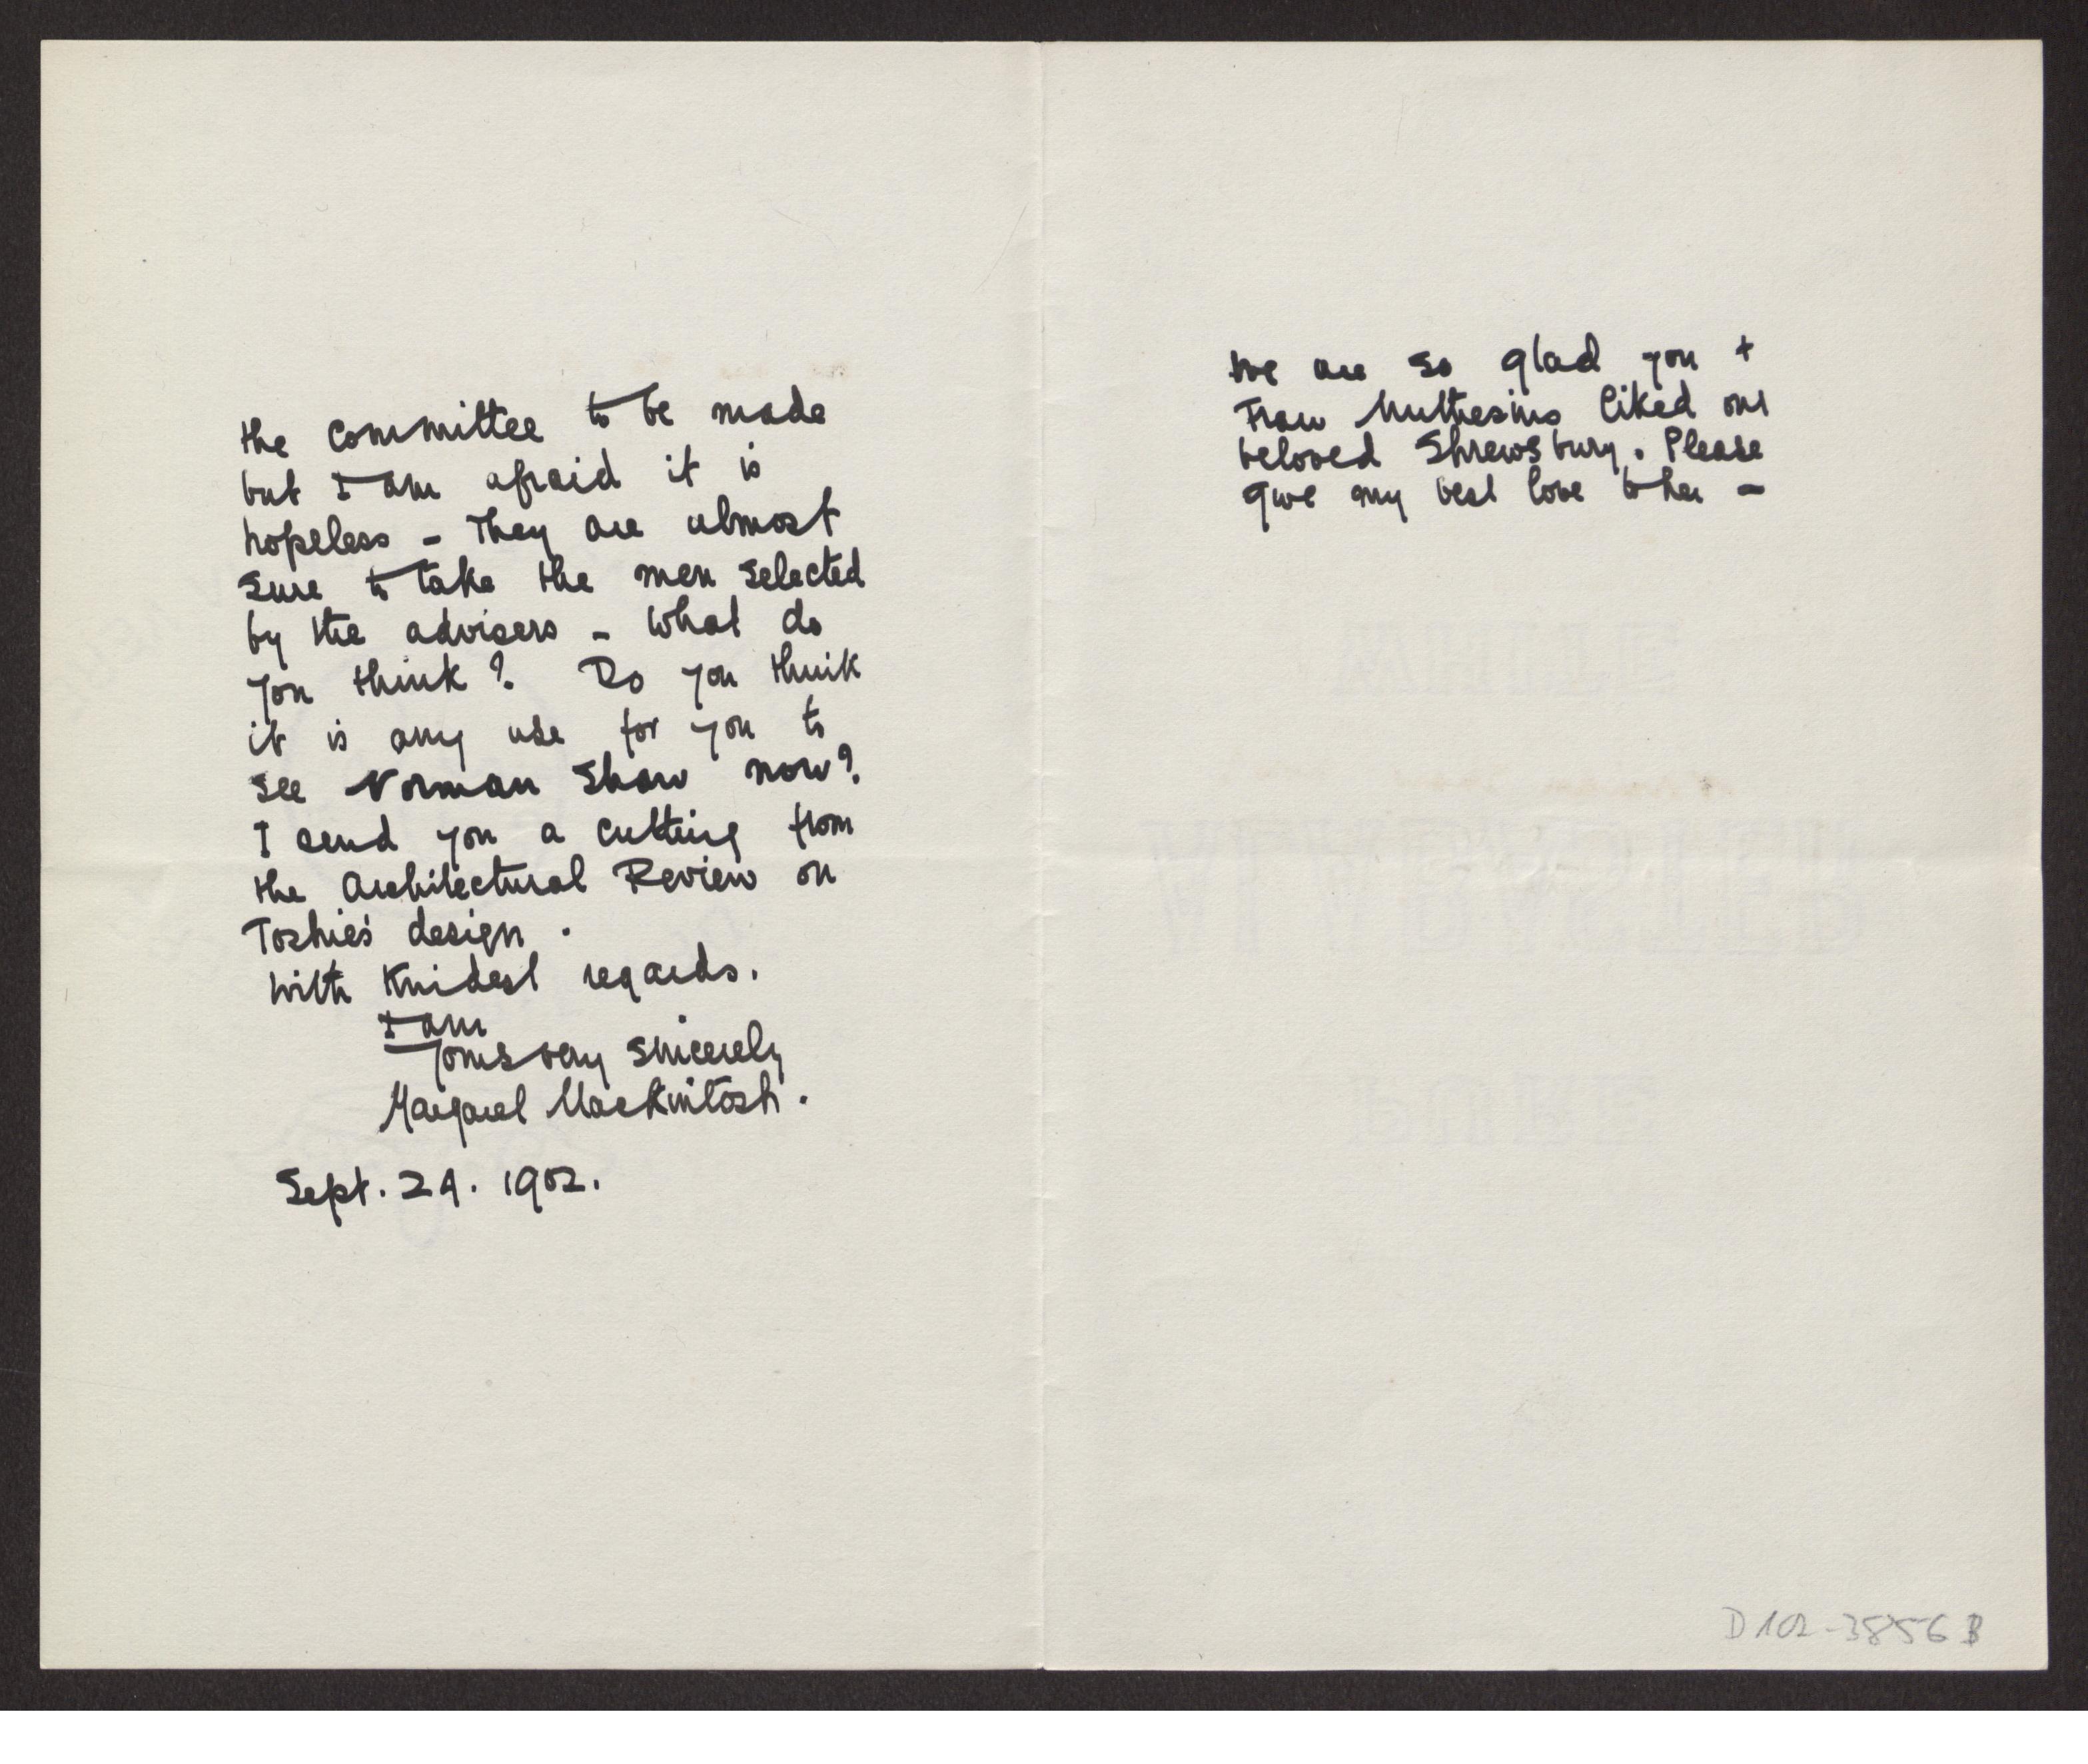 the committee to be made
but I am afraid it is
hopeless – They are almost
sure to take the men selected
by the advisers – What do
you think? Do you think
it is any use for you to
see Norman Shaw now?
I send you a cutting from
the Architectural Review on
Toshie's design.
With kindest regards.
I am
Yours very sincerely
Margaret Mackintosh.
Sept. 24. 1902.
We are so glad you +
Frau Muthesius liked our
beloved Shrewsbury. Please
give my best love to her –
D 102-3856 B